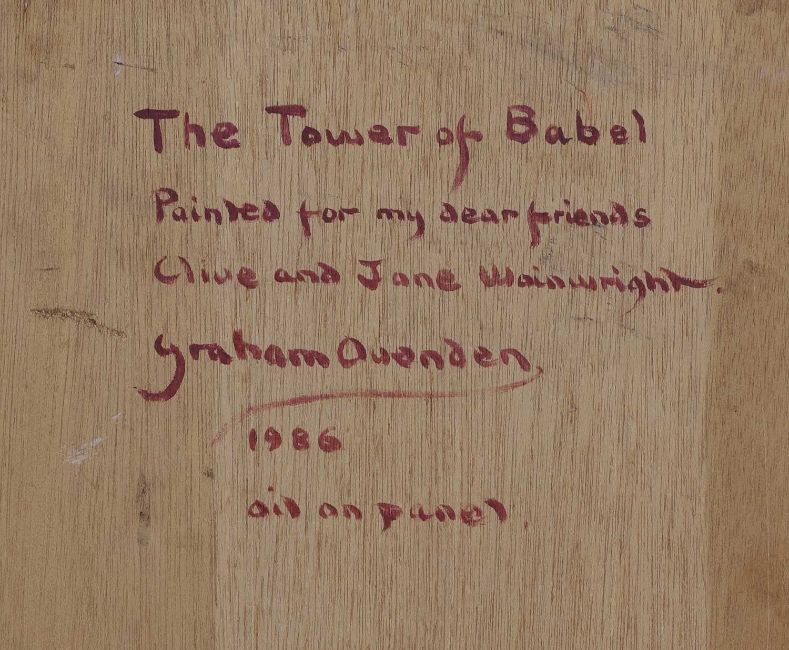 The Tower of Babel
Painted for my dear friends
Clive and Jane Wainwright.
Graham Ovenden,
1986
oil on panel.